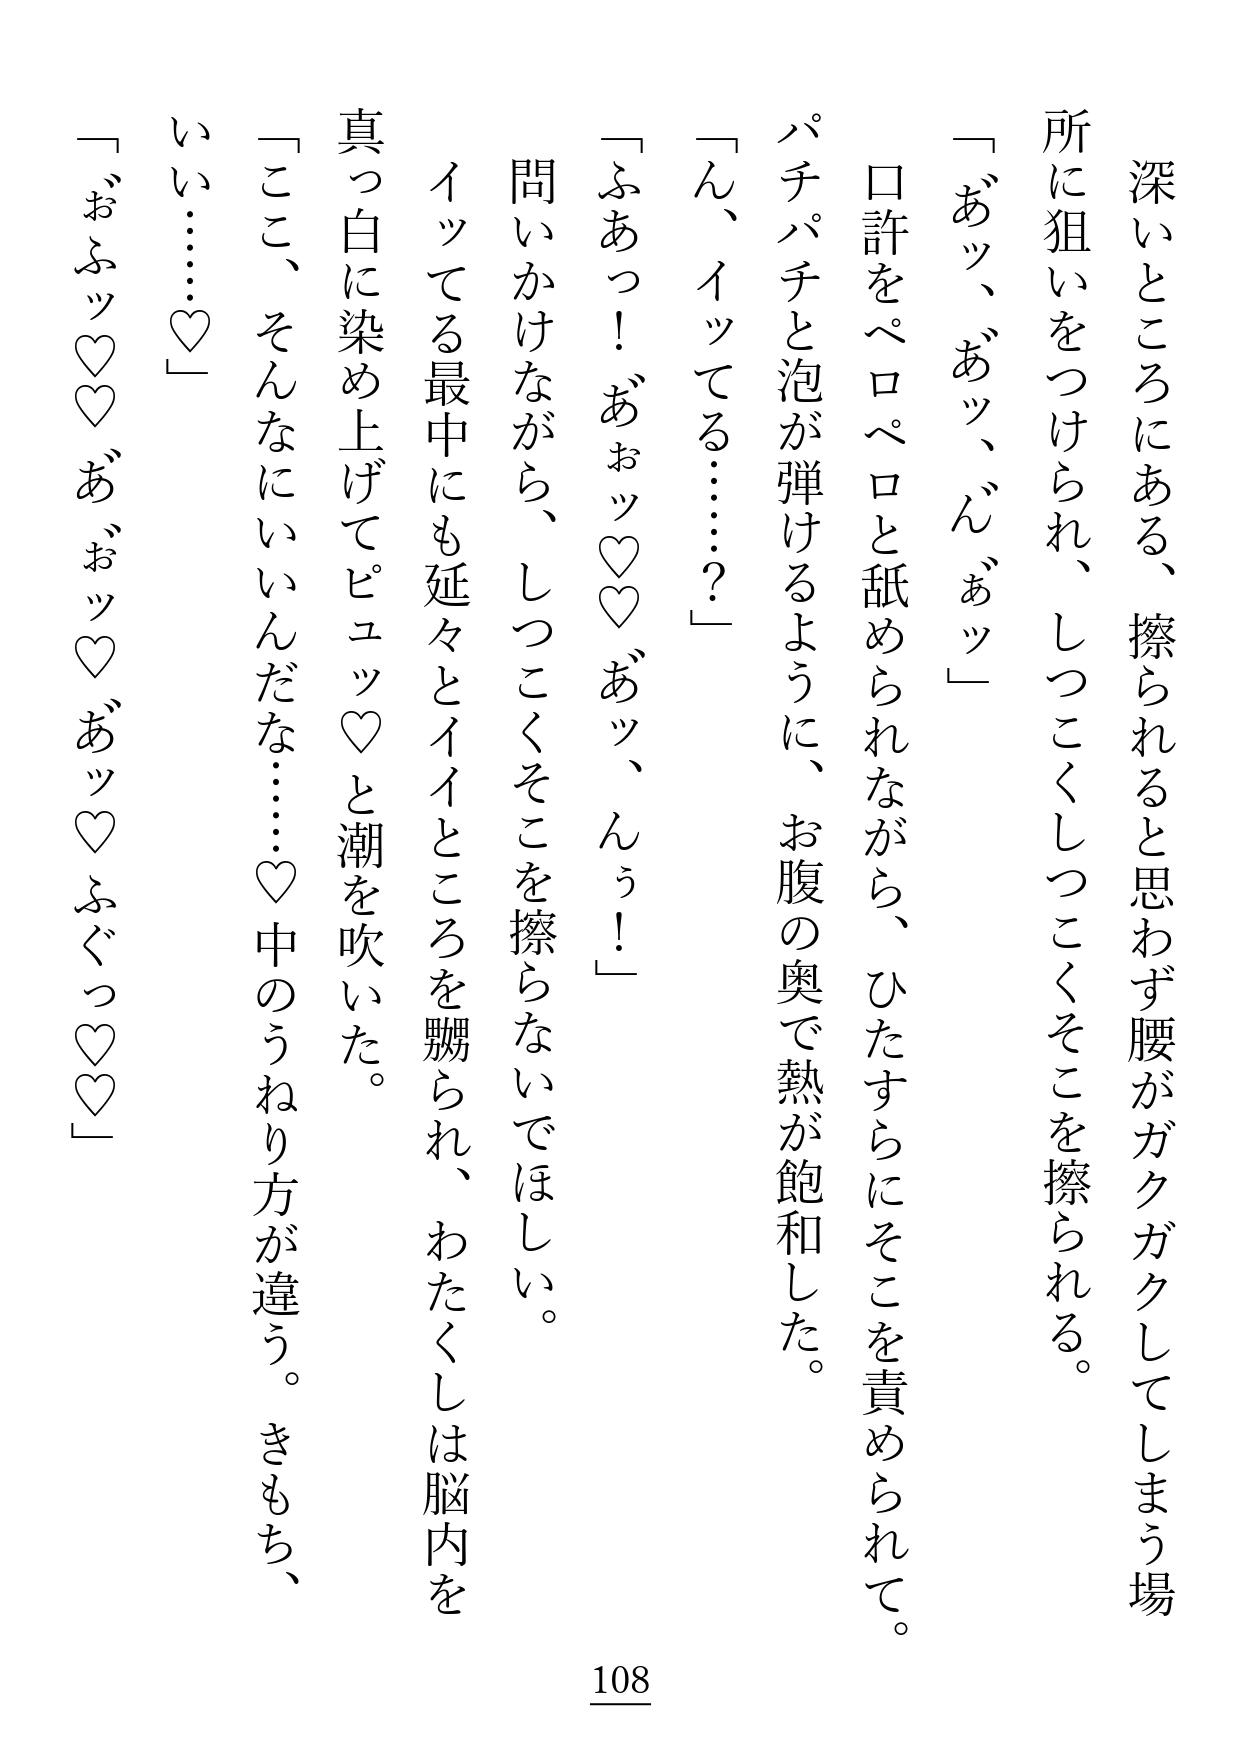 深いところにある、擦られると思わず腰がガクガクしてしまう場
所に狙いをつけられ、しつこくしつこくそこを擦られる。
「あ゛ッ、あ゛ッ、ん゛ぁ゛ッ」
口許をペロペロと舐められながら、ひたすらにそこを責められて。
パチパチと泡が弾けるように、お腹の奥で熱が飽和した。
「ん、イッてる……？」
「ふあっ！あ゛ぉッ♡♡あ゛ッ、んぅ！」
問いかけながら、しつこくそこを擦らないでほしい。
イッてる最中にも延々とイイところを嬲られ、わたくしは脳内を
真っ白に染め上げてピュッ♡と潮を吹いた。
「ここ、そんなにいいんだな……♡中のうねり方が違う。きもち、
いい……♡」
「ぉ゛ふッ♡♡あ゛ぉ゛ッ♡あ゛ッ♡ふぐっ♡♡」
108